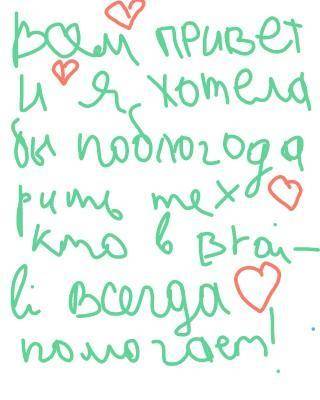 Всем привет
и я хотела
бы поблогода
рить тех
кто в втай-
ві всегда
помогает!